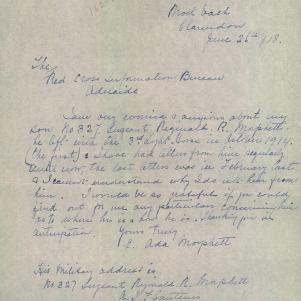 Clarendon
June 26th /18.
The
Red Cross Information Bureau
Adelaide
I am very worried & anxious about my
son No 327 Sergeant Reginald. R. Morphett
he left with the 3rd Light Horse in October 1914.
(the first) & I have had letters from him regularly
until now, the last letters was in February last
& I cannot understand why I do not hear from
him. I would be so grateful if you could
find out for me any particulars concerning him
as to where he is & how he is. Thanking you in
anticipation.
Yours Truly
E. Ada Morphett
His Military address is
No 327 Sergeant Reginald. R. Morphett